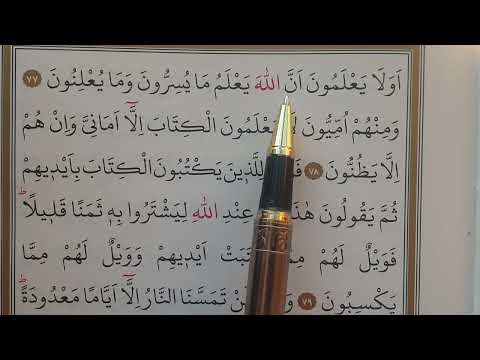 اَوَلَا يَعْلَمُونَ اَنَّ اللّٰهَ يَعْلَمُ مَا يُسِرُّونَ وَمَا يُعْلِنُونَ ٧٧
وَمِنْهُمْ اُمِّيُّونَ يَعْلَمُونَ الْكِتَابَ اِلَّٓا اَمَانِيَّ وَاِنْ هُمْ
اِلَّا يَظُنُّونَ ٧٨ لِلَّذ۪ينَ يَكْتُبُونَ الْكِتَابَ بِاَيْد۪يهِمْ
ثُمَّ يَقُولُونَ هٰذَا عِنْدِ اللّٰهِ لِيَشْتَرُوا بِه۪ ثَمَنًا قَل۪يلًاۜ
فَوَيْلٌ لَهُمْ مِمَّا اَيْد۪يهِمْ وَوَيْلٌ لَهُمْ مِمَّا
يَكْسِبُونَ ٧٩ تَمَسَّنَا النَّارُ اِلَّٓا اَيَّامًا مَعْدُودَةًۜ